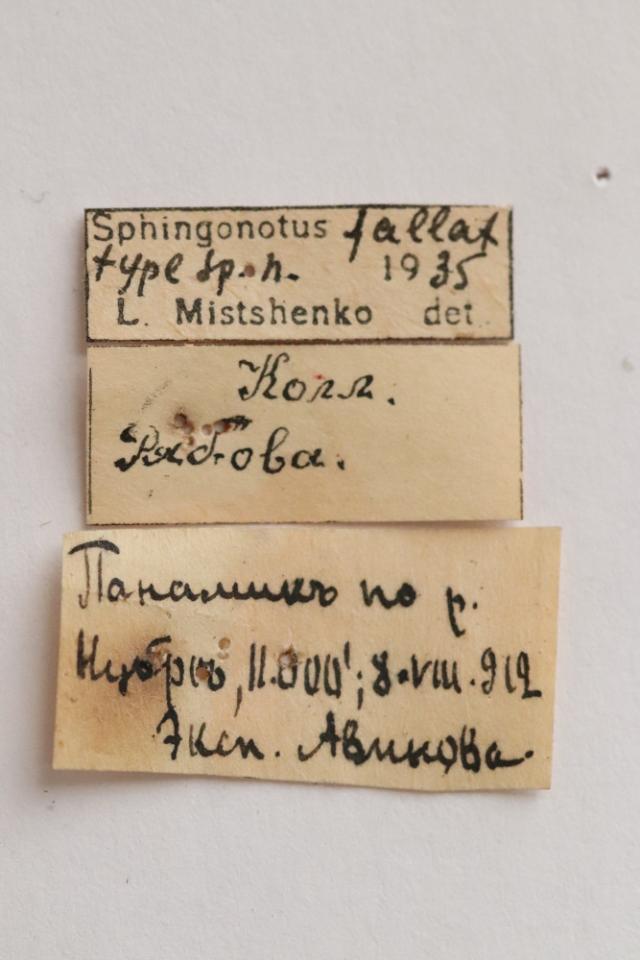 Sphingonotus fallax
type sp. n. 1935
L. Mistshenko det.
Колл.
Рябова.
Панамикъ по р.
Нубрѣ, 11.000'; 8.VIII.912
Эксп. Авинова.